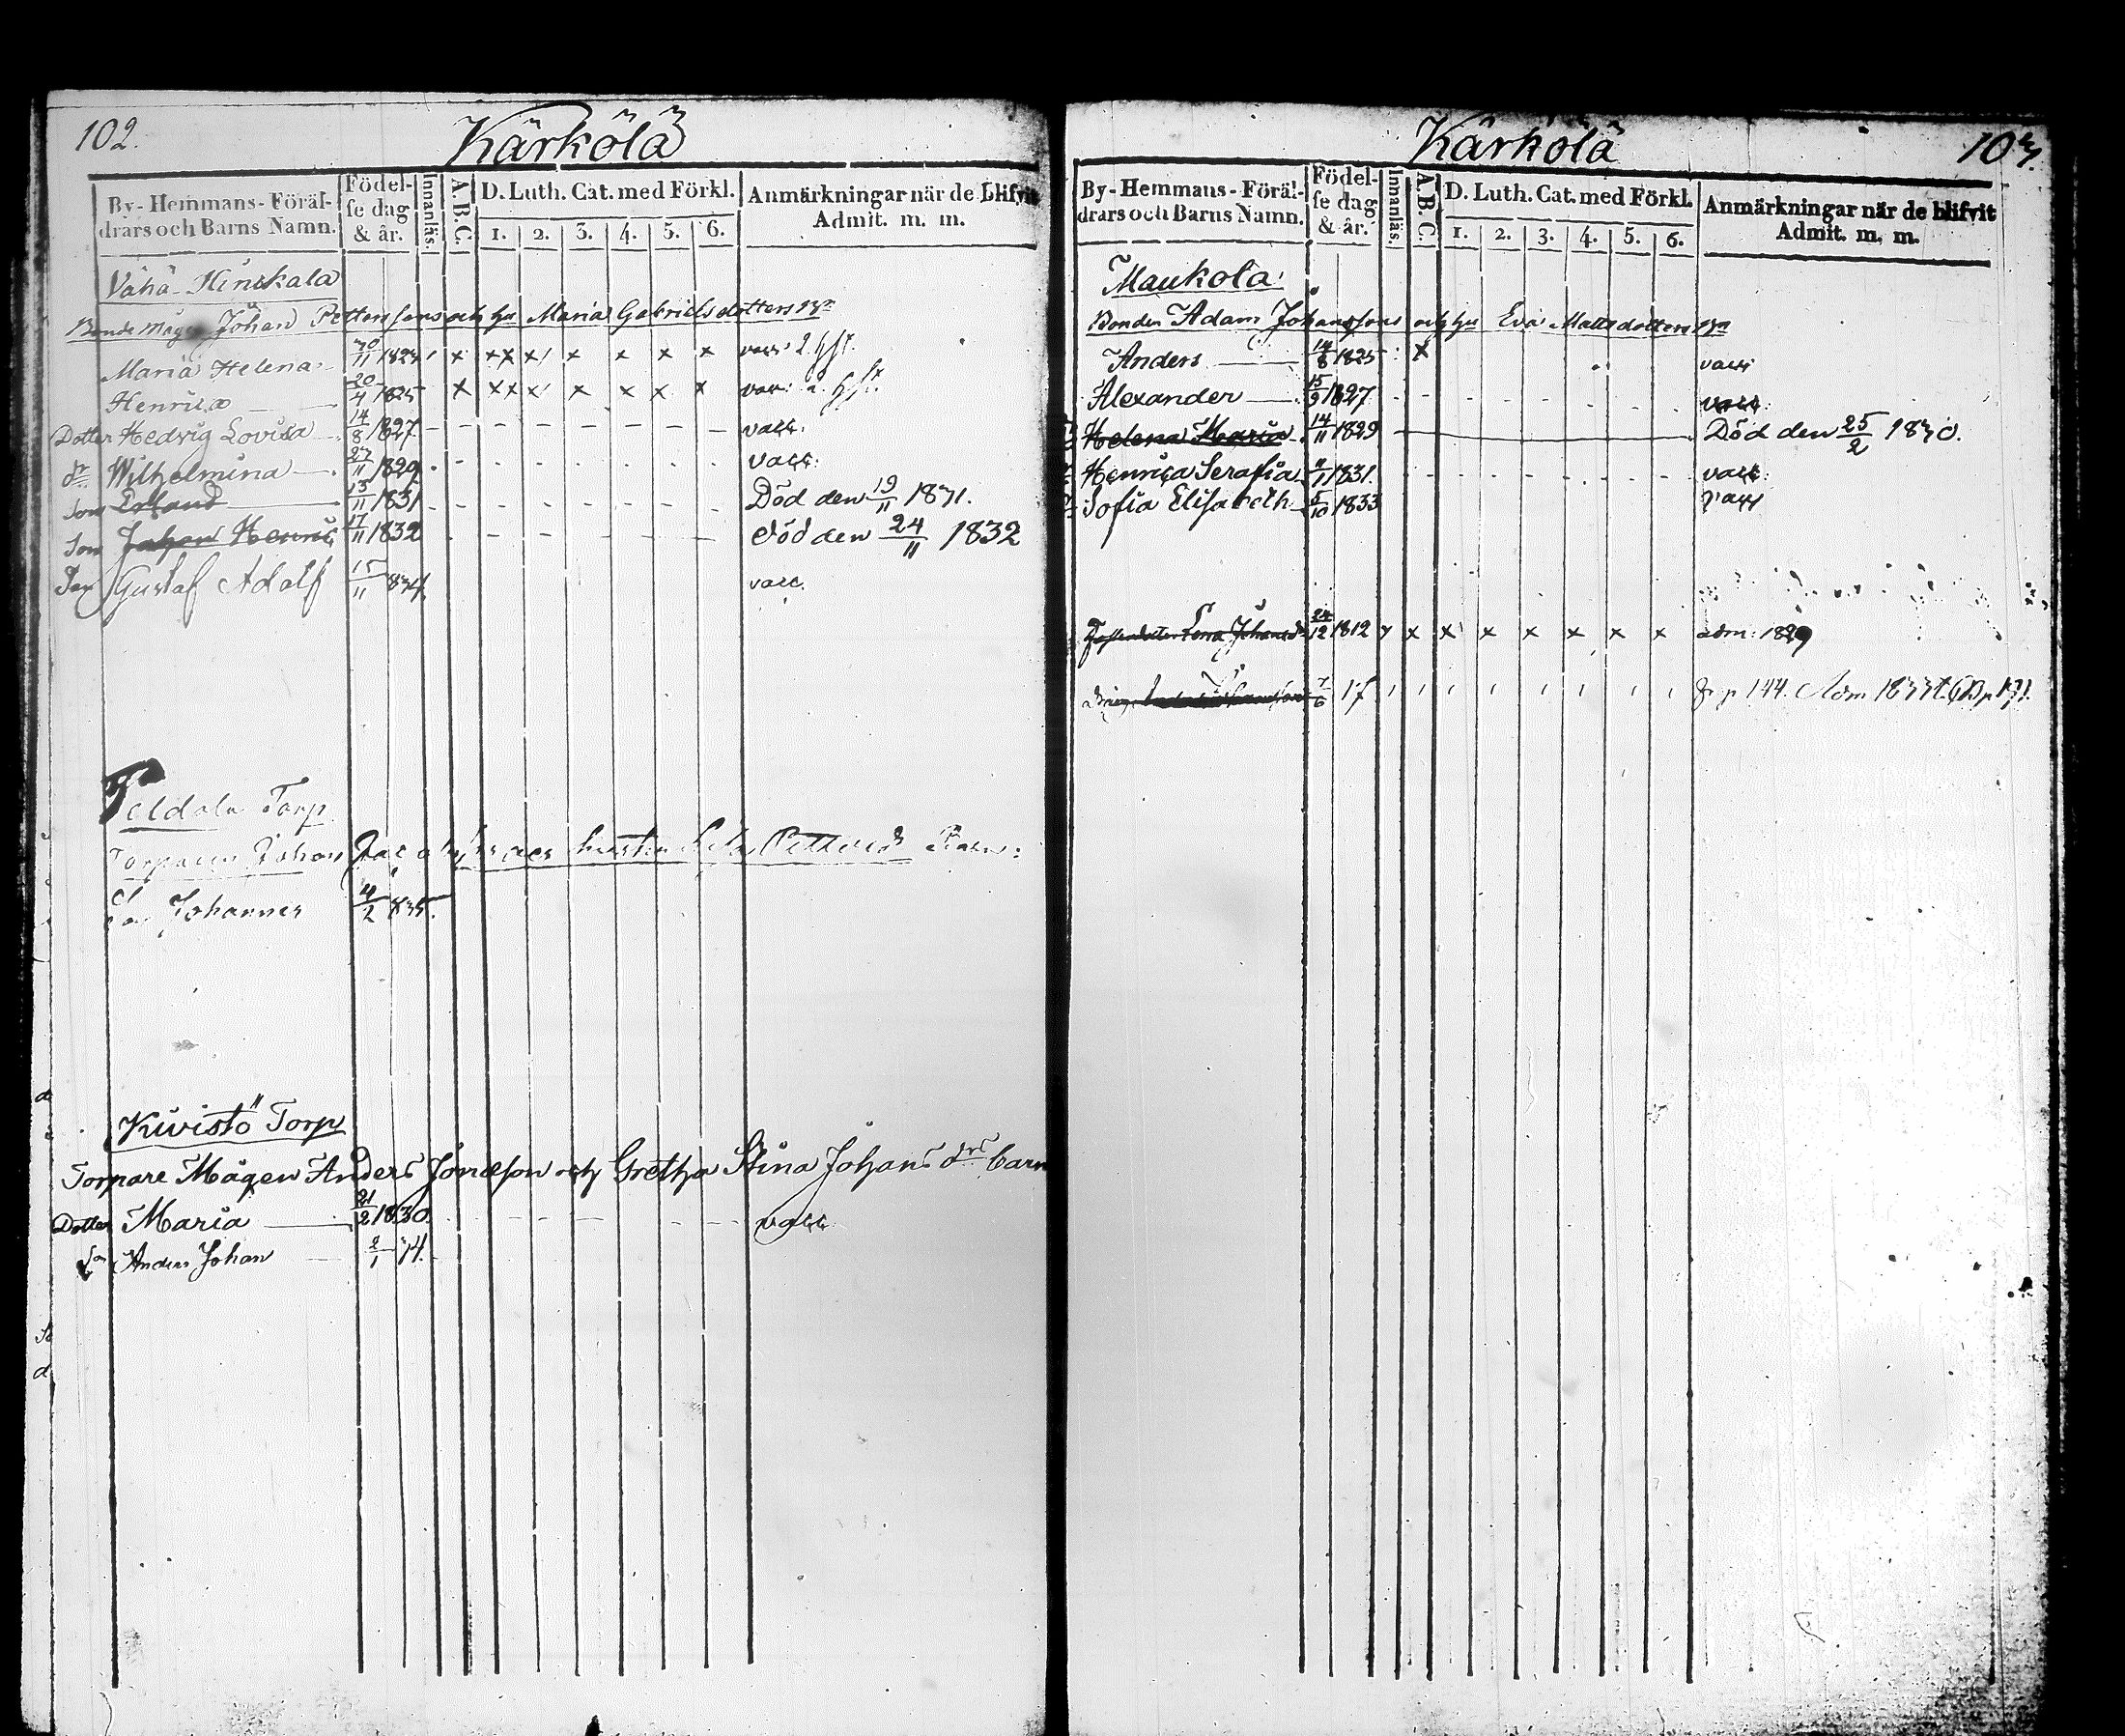 102.
Kärkölä
By-Hemmans-Föräl-
drars och Barns Namn.
Födel-
se dag
& år.
Innanläs.
A. B. C.
D. Luth. Cat. med Förkl.
1. 2. 3. 4. 5. 6.
Anmärkningar när de blifvit
Admit. m. m.
Vähä-Hinskala
Bonde Mågen Johan Pettersons och hu Maria Gabrielsdotters Bn
Maria Helena 30/11 182 x xx x x x x x vacc:
Henrica 20/4 1825 x xx x x x x x vac:
Dotter Hedvig Lovisa 14/8 1827 vacc.
dr Wilhelmina 27/11 1829 vacc:
Son Erland 13/11 1831 Död den 19/11 1831.
Son Johan Henric 17/11 1832 död den 24/11 1832
Son Gustaf Adolf 15/11 834 vacc.
Torp
Torparen Johan hustru Barn:
Son Johannes 4/2 835.
Kivistö Torp
Torpare Mågen Anders Jonæson och Gretha Stina Johans drs barn
Dotter Maria 21/2 1830. vacc.
Son Anders Johan 2/1 34.
Kärkölä
103
By-Hemmans-Föräl-
drars och Barns Namn.
Födel-
se dag
& år.
Innanläs.
A. B. C.
D. Luth. Cat. med Förkl.
1. 2. 3. 4. 5. 6.
Anmärkningar när de blifvit
Admit. m. m.
Maukola:
Bonden Adam Johanssons och hu Eva Mattsdotters Bn
Anders 14/8 1825 x vacc
Alexander 15/9 1827 vacc:
Helena Maria 14/11 1829 Död den 25/2 1830.
Henrica Serafia 1831. vacc:
Sofia Elisabeth 5/10 1833 vacc
Lena Johansd 24/12 1812 x x x x x x x adm: 1829
Dräng 7/6 17 fr p 144. Adm 183